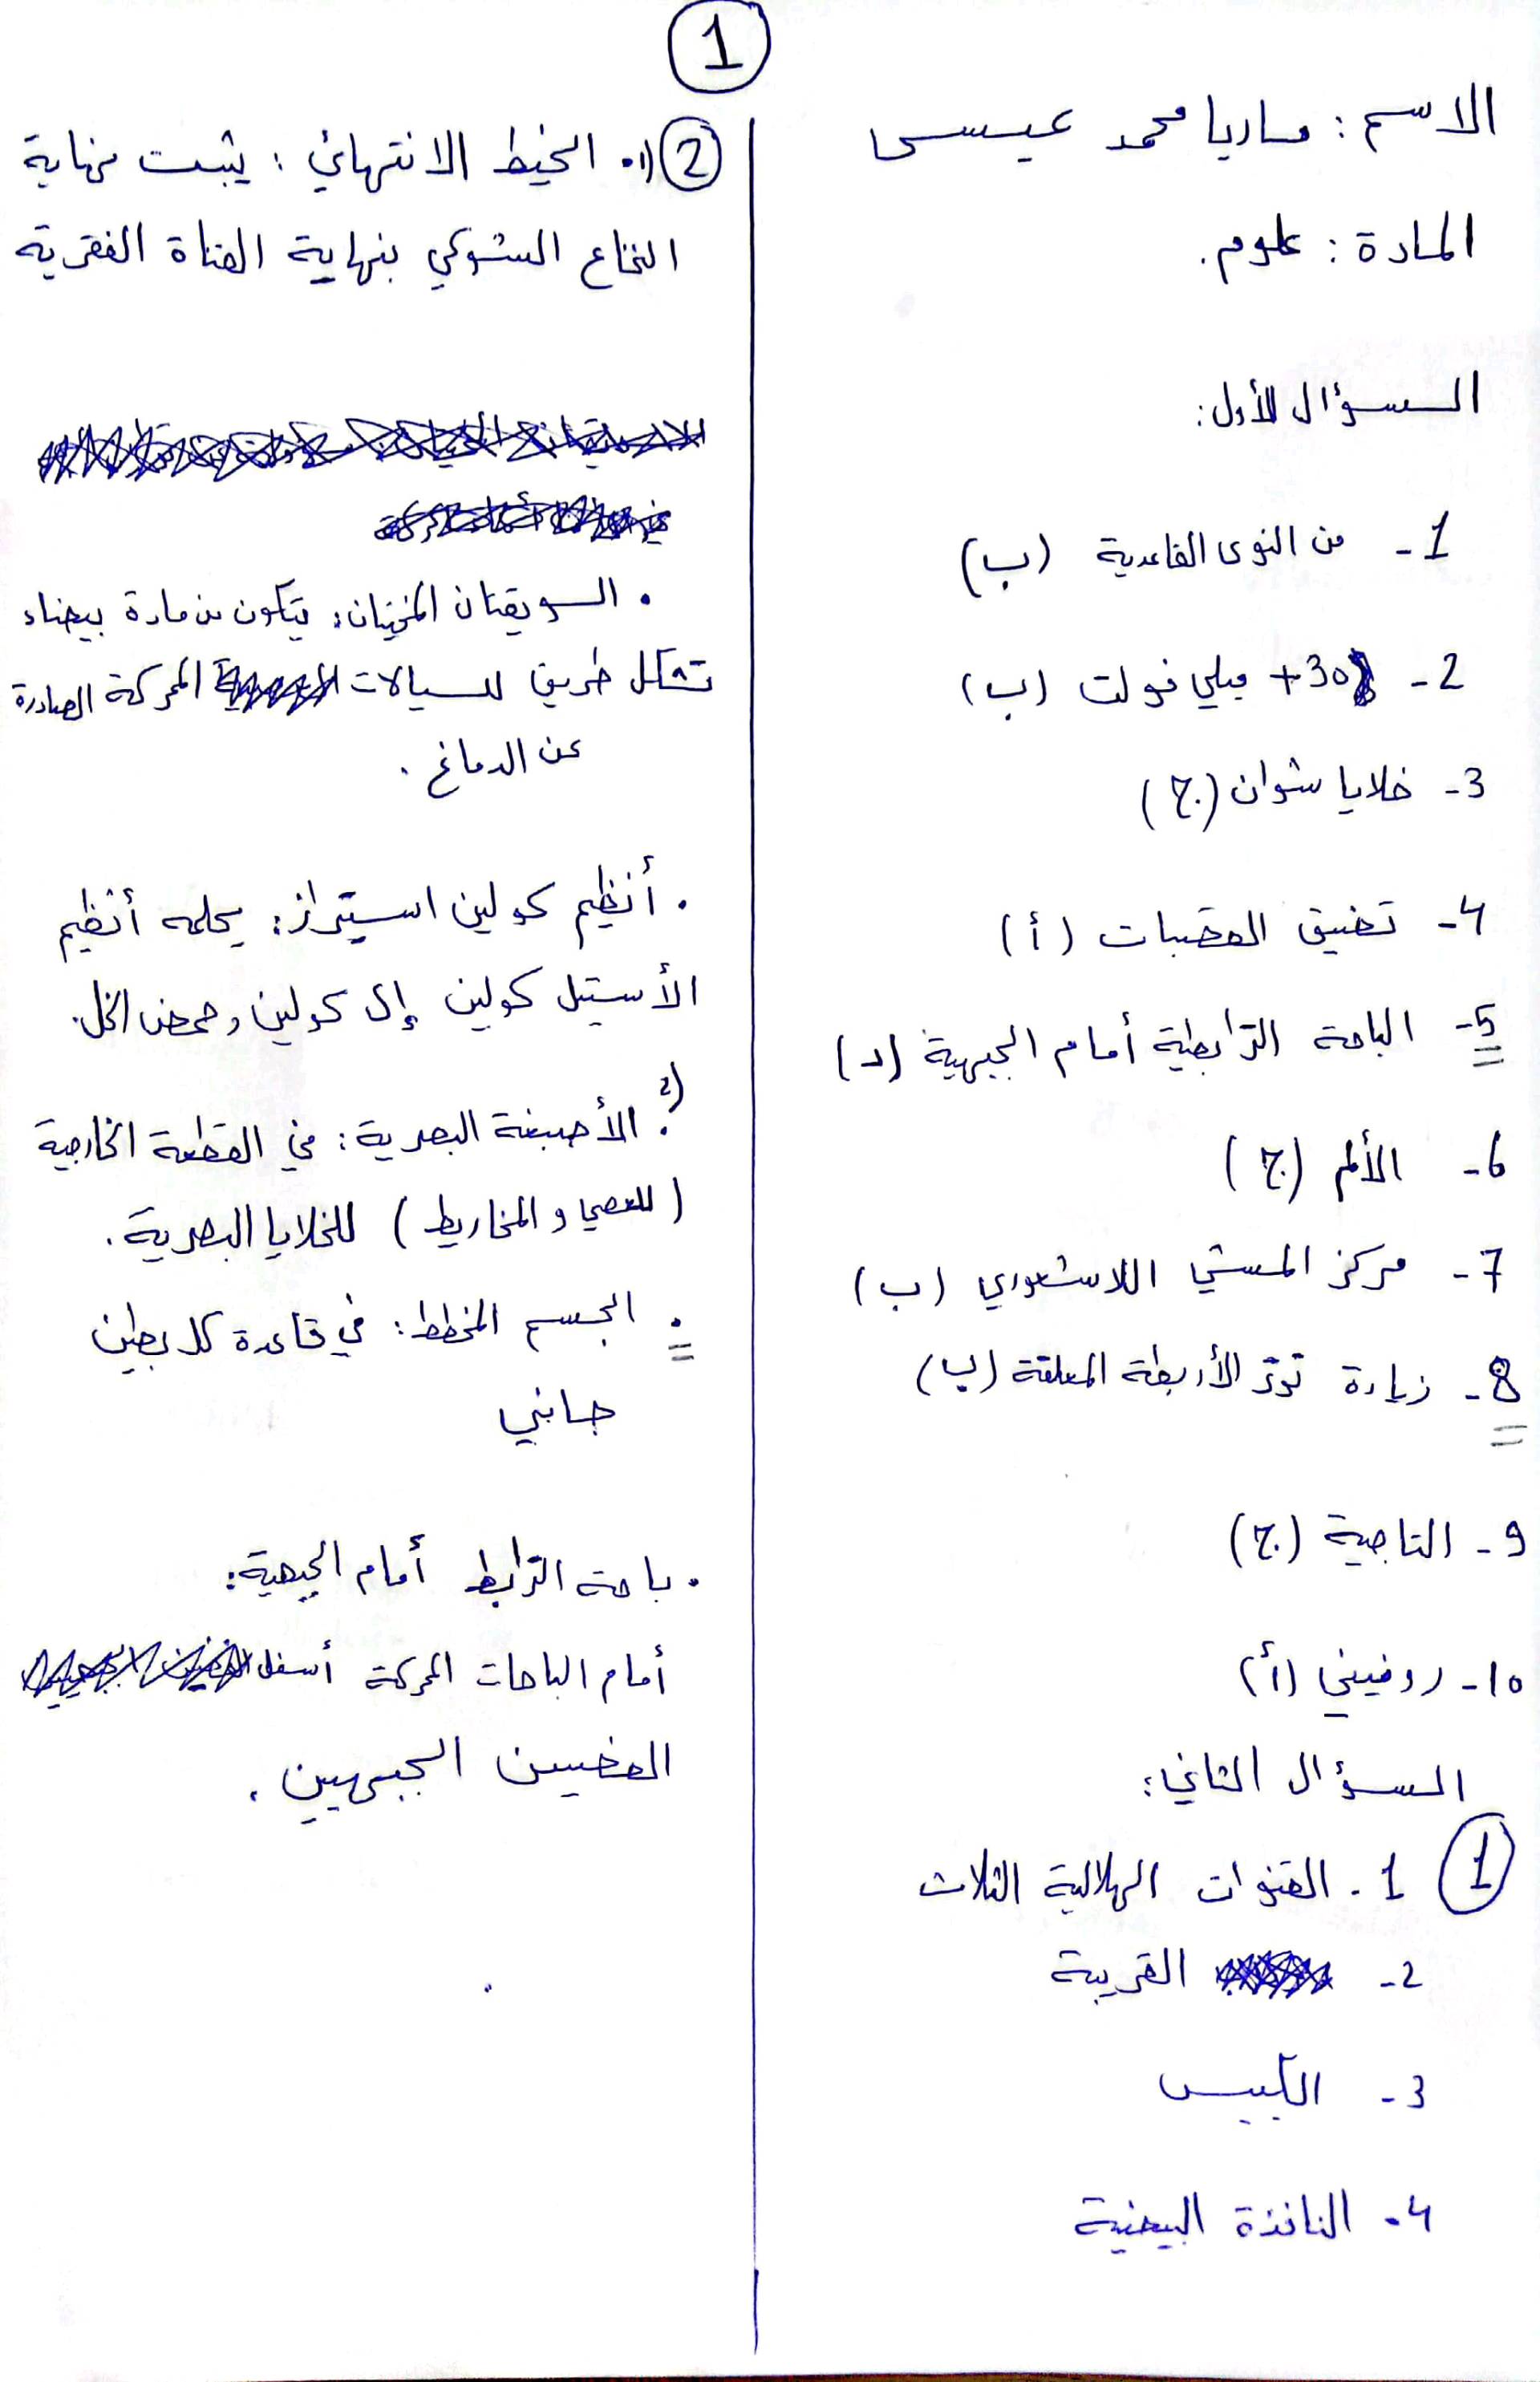 1
الاسم : ماريا محمد عيسى
المادة : علوم.
السؤال الأول:
1- من النوى القاعدية (ب)
2- +30 ميلي فولت (ب)
3- خلايا شوان (ج)
4- تضيق العقبات (أ)
5- الباحة الترابطية أمام الجبهية (د)
6- الألم (ج)
7- مركز المشي اللاشعوري (ب)
8- زيادة توتر الأربطة المعلقة (ب)
9- التاجية (ج)
10- روفيني (أ)
السؤال الثاني:
1 1. القنوات الهلالية الثلاث
2- القريبة
3- الكييس
4. النافذة البيضية
2 1). الخيط الانتهائي : يثبت نهاية
النخاع الشوكي بنهاية القناة الفقرية
. السويقتان المخيتان: يتكون من مادة بيضاء
تشكل طريق للسيالات المحركة الصادرة
عن الدماغ .
. أنظيم كولين استيراز: يحلمه أنظيم
الأستيل كولين إلى كولين وحمض الخل.
2). الأصبغة البصرية : في القطعة الخارجية
(للعصي والمخاريط) للخلايا البصرية .
. الجسم المخطط : في قاعدة كل بطين
جانبي
. باحة الترابط أمام الجبهية:
أمام الباحات المحركة أسفل
الفصين الجبهيين .